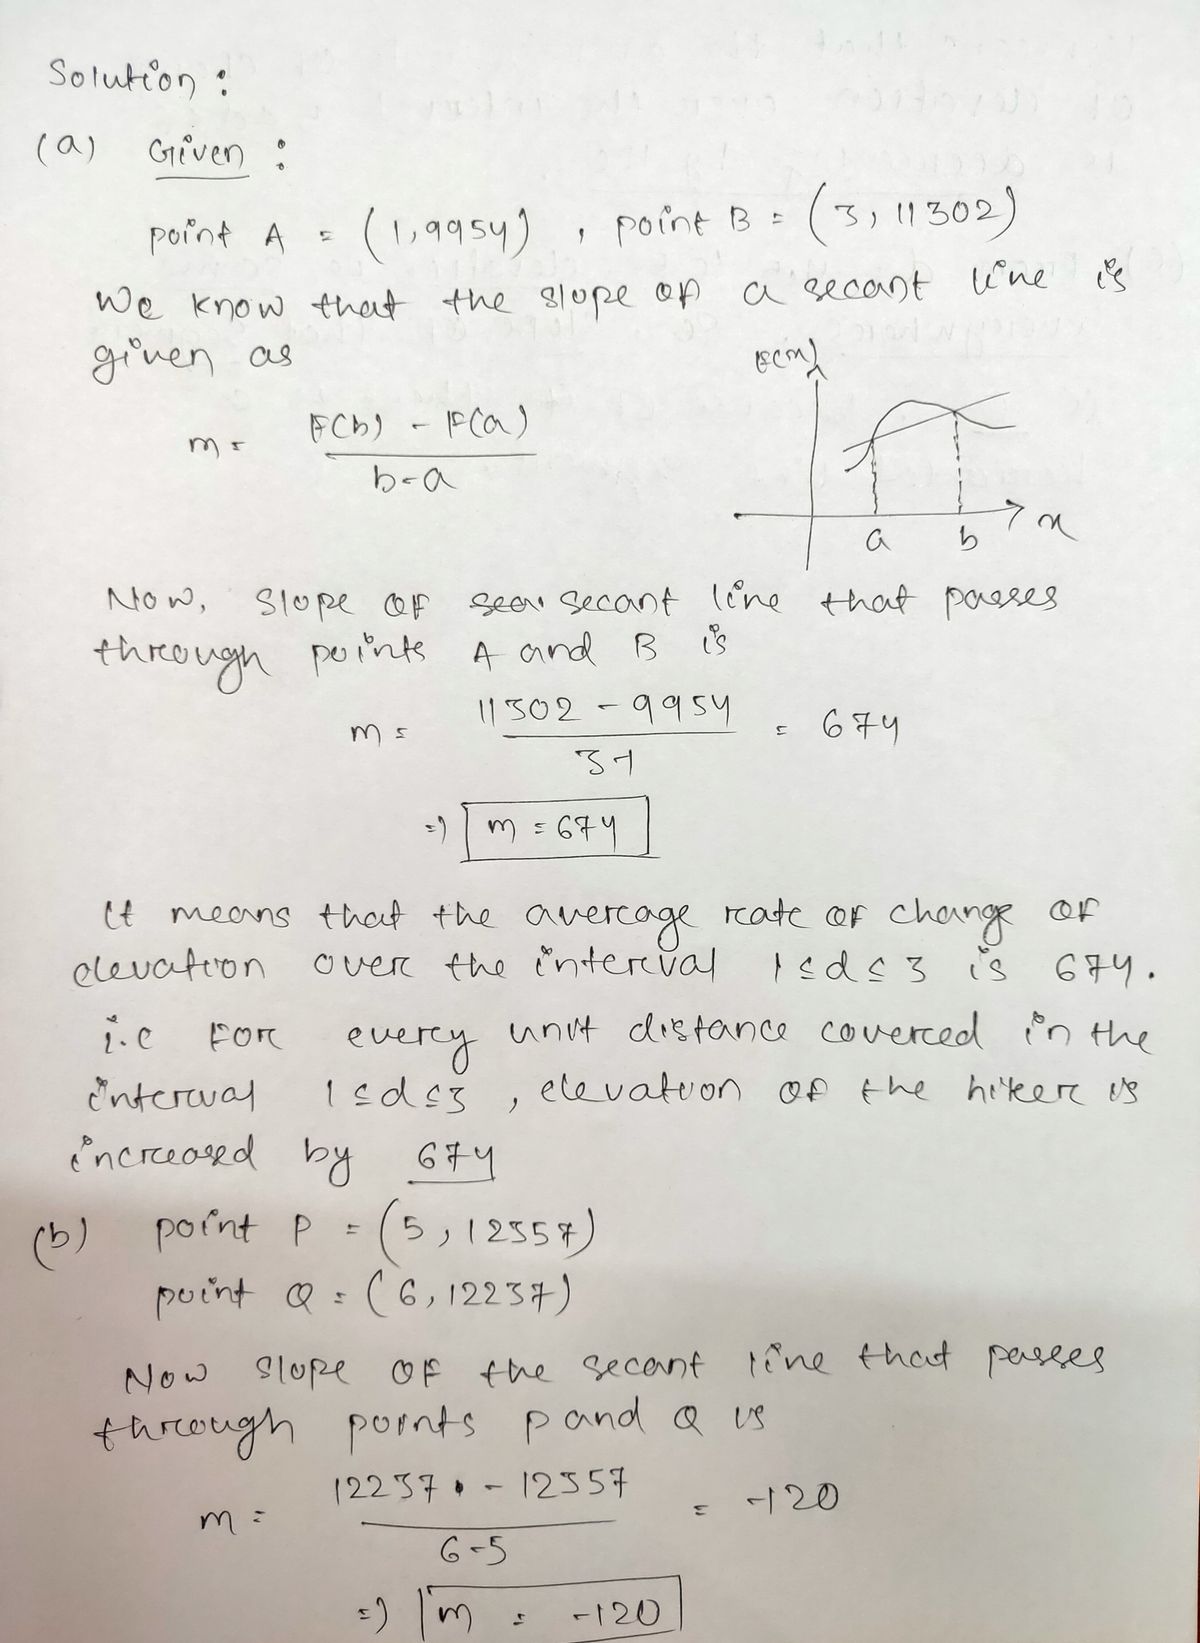 Solution :
(a) Given :
point A = (1, 9954) , point B = (3, 11302)
We know that the slope of a secant line is
given as
E(x)
m = F(b) - F(a)
b-a
x
a b
Now, slope of secant line that passes
through points A and B is
m = 11302 - 9954 = 674
3-1
=> m = 674
It means that the average rate of change of
elevation over the interval 1≤d≤3 is 674.
i.e For every unit distance covered in the
interval 1≤d≤3 , elevation of the hiker is
increased by 674
(b) point P = (5, 12357)
point Q = (6, 12237)
Now slope of the secant line that passes
through points p and Q is
m = 12237 - 12357 = -120
6-5
=> m = -120